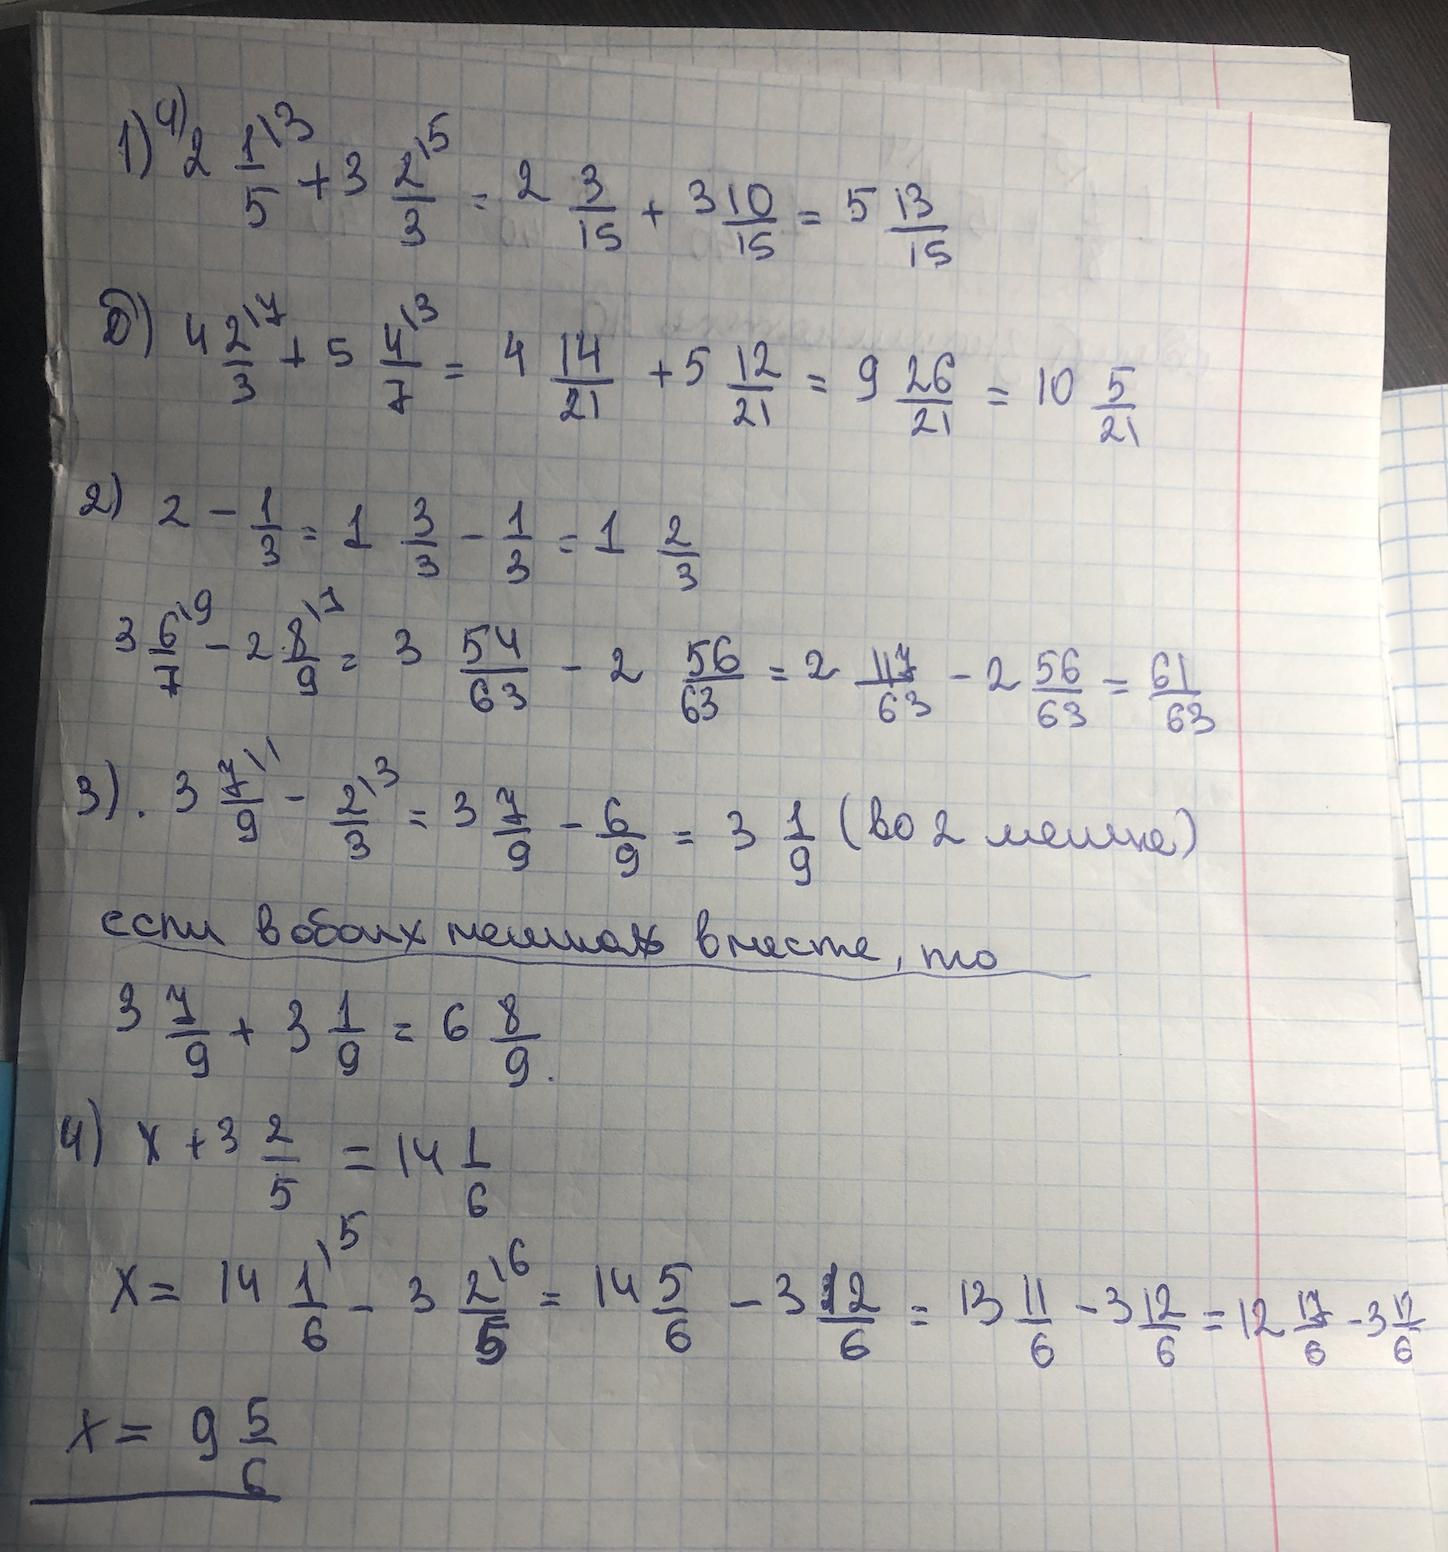 1) а) 2 1/5 \3 + 3 2/3 \5 = 2 3/15 + 3 10/15 = 5 13/15
б) 4 2/3 \7 + 5 4/7 \3 = 4 14/21 + 5 12/21 = 9 26/21 = 10 5/21
2) 2 - 1/3 = 1 3/3 - 1/3 = 1 2/3
3 6/7 \9 - 2 8/9 \7 = 3 54/63 - 2 56/63 = 2 117/63 - 2 56/63 = 61/63
3). 3 7/9 \1 - 2/3 \3 = 3 7/9 - 6/9 = 3 1/9 (во 2 мешке)
если в обоих мешках вместе, то
3 7/9 + 3 1/9 = 6 8/9.
4) x + 3 2/5 = 14 1/6
x = 14 1/6 \5 - 3 2/5 \6 = 14 5/6 - 3 12/6 = 13 11/6 - 3 12/6 = 12 17/6 - 3 12/6
x = 9 5/6